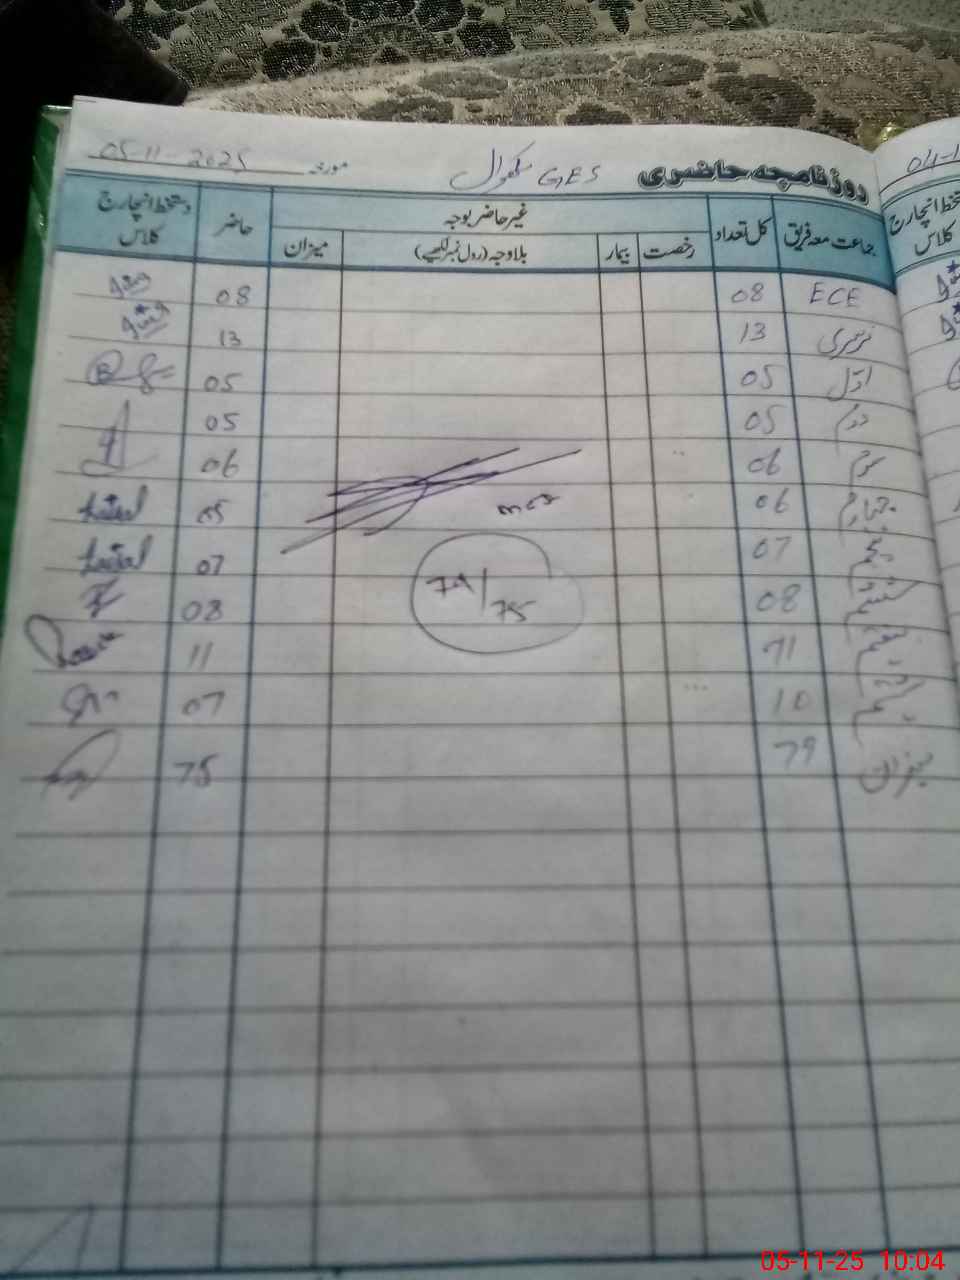 روزنامچہ حاضری GES مکھوال مورخہ 05-11-2025
جماعت معہ فریق کل تعداد غیر حاضر بوجہ حاضر دستخط انچارج کلاس
رخصت بیمار بلاوجہ (رول نمبر لکھیے) میزان
ECE 08 08
نرسری 13 13
اول 05 05
دوم 05 05
سوم 06 06
چہارم 06 05
پنجم 07 07
ششم 08 08
ہفتم 11 11
ہشتم 10 07
میزان 79 75
79/75
04-1
دستخط انچارج
کلاس
05-11-25 10:04